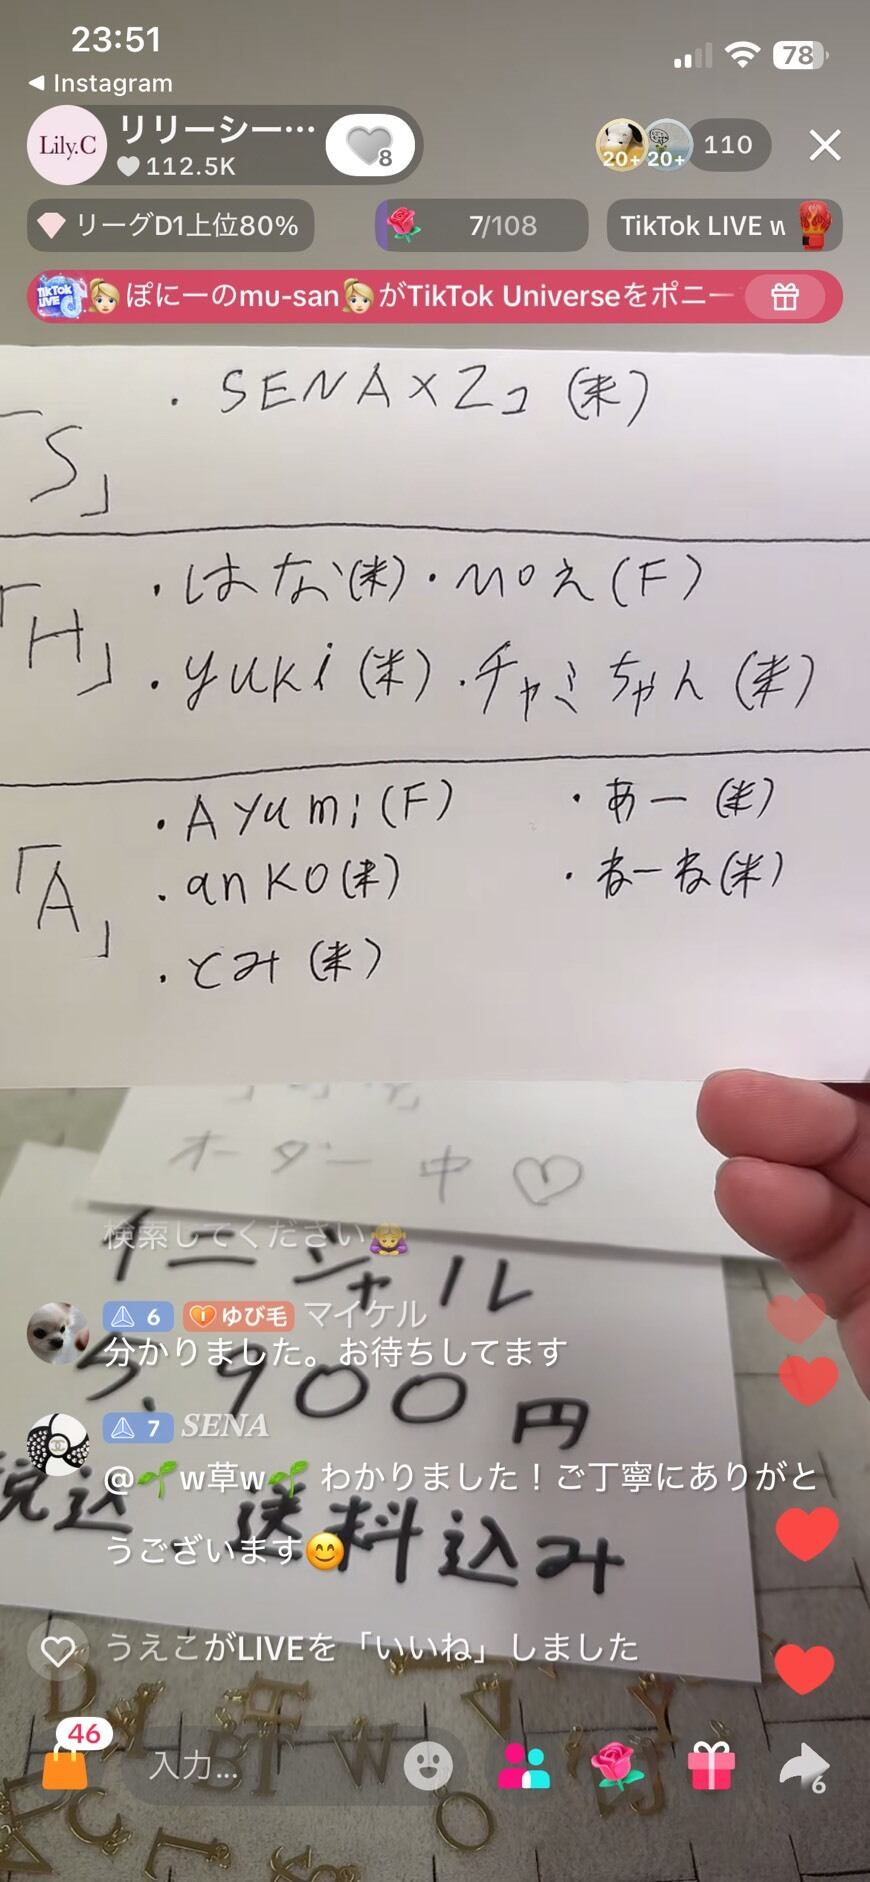 23:51
78
Instagram
Lily.C
リリーシー…
8
112.5K
20+
20+
110
リーグD1上位80%
7/108
TikTok LIVE w
TikTok LIVE
ぽにーのmu-sanがTikTok Universeをポニー
「S」
・SENA×2コ(米)
「H」
・はな(米)・moえ(F)
・yuki(米)・チャミちゃん(米)
「A」
・Ayumi(F)
・あー(米)
・anko(米)
・ねーね(米)
・とみ(米)
オーダー中♡
検索してください🙇‍♀️
イニシャル
6 ゆび毛 マイケル
分かりました。お待ちしてます
5,900円
7 SENA
@🌱w草w🌱 わかりました！ご丁寧にありがと
うございます😊
税込、送料込み
うえこがLIVEを「いいね」しました
46
入力...
6